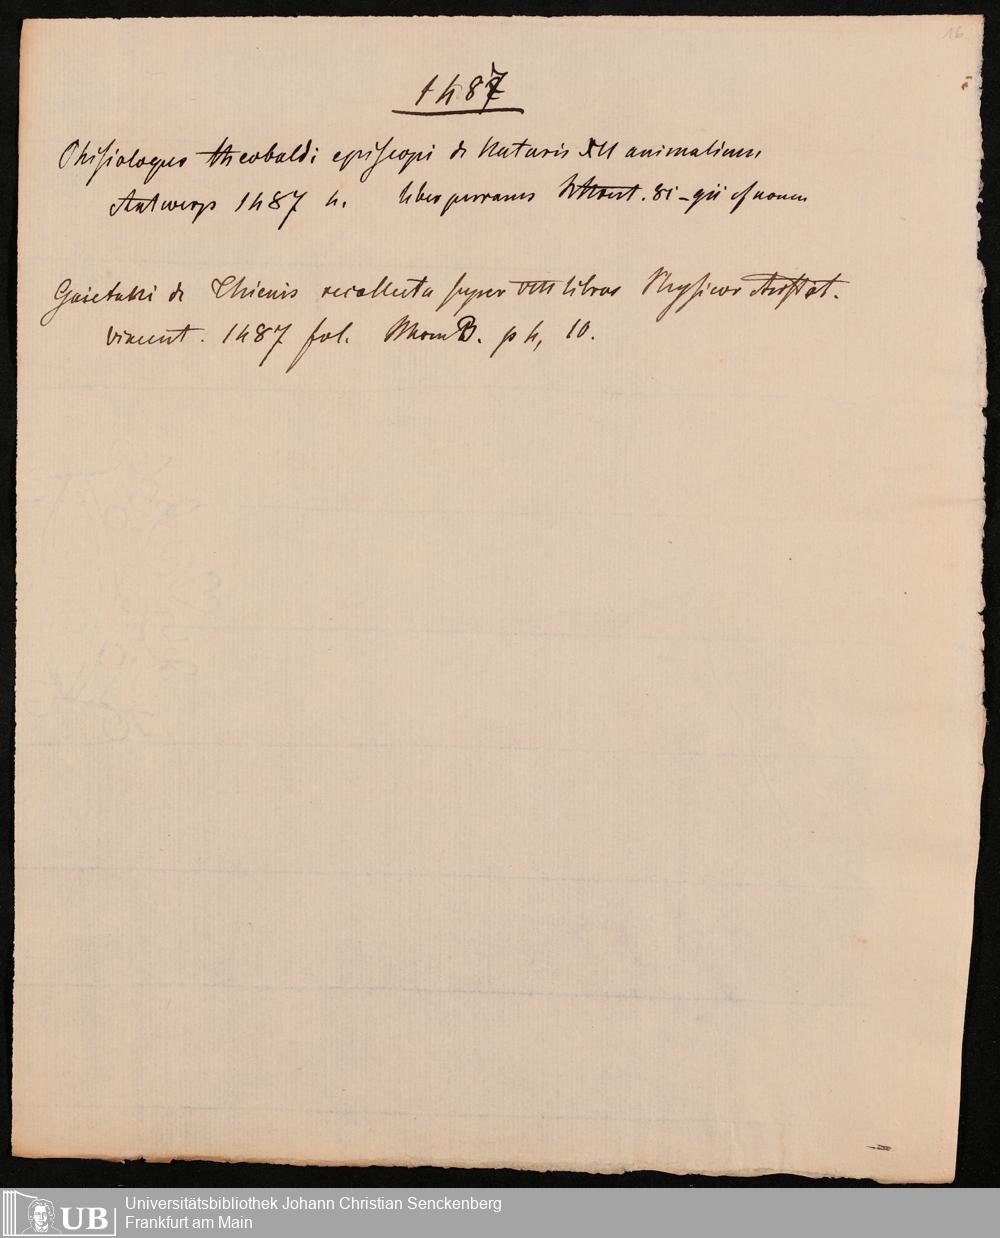 16
1487
Phisiologus theobaldi episcopi de Naturis XII animalium
Antwerp 1487 4. liber perrarus
Gaietani de Thienis recollecta super VIII libros Physicor Aristot.
vincent. 1487 fol. p 4, 10.
Universitätsbibliothek Johann Christian Senckenberg
UB Frankfurt am Main